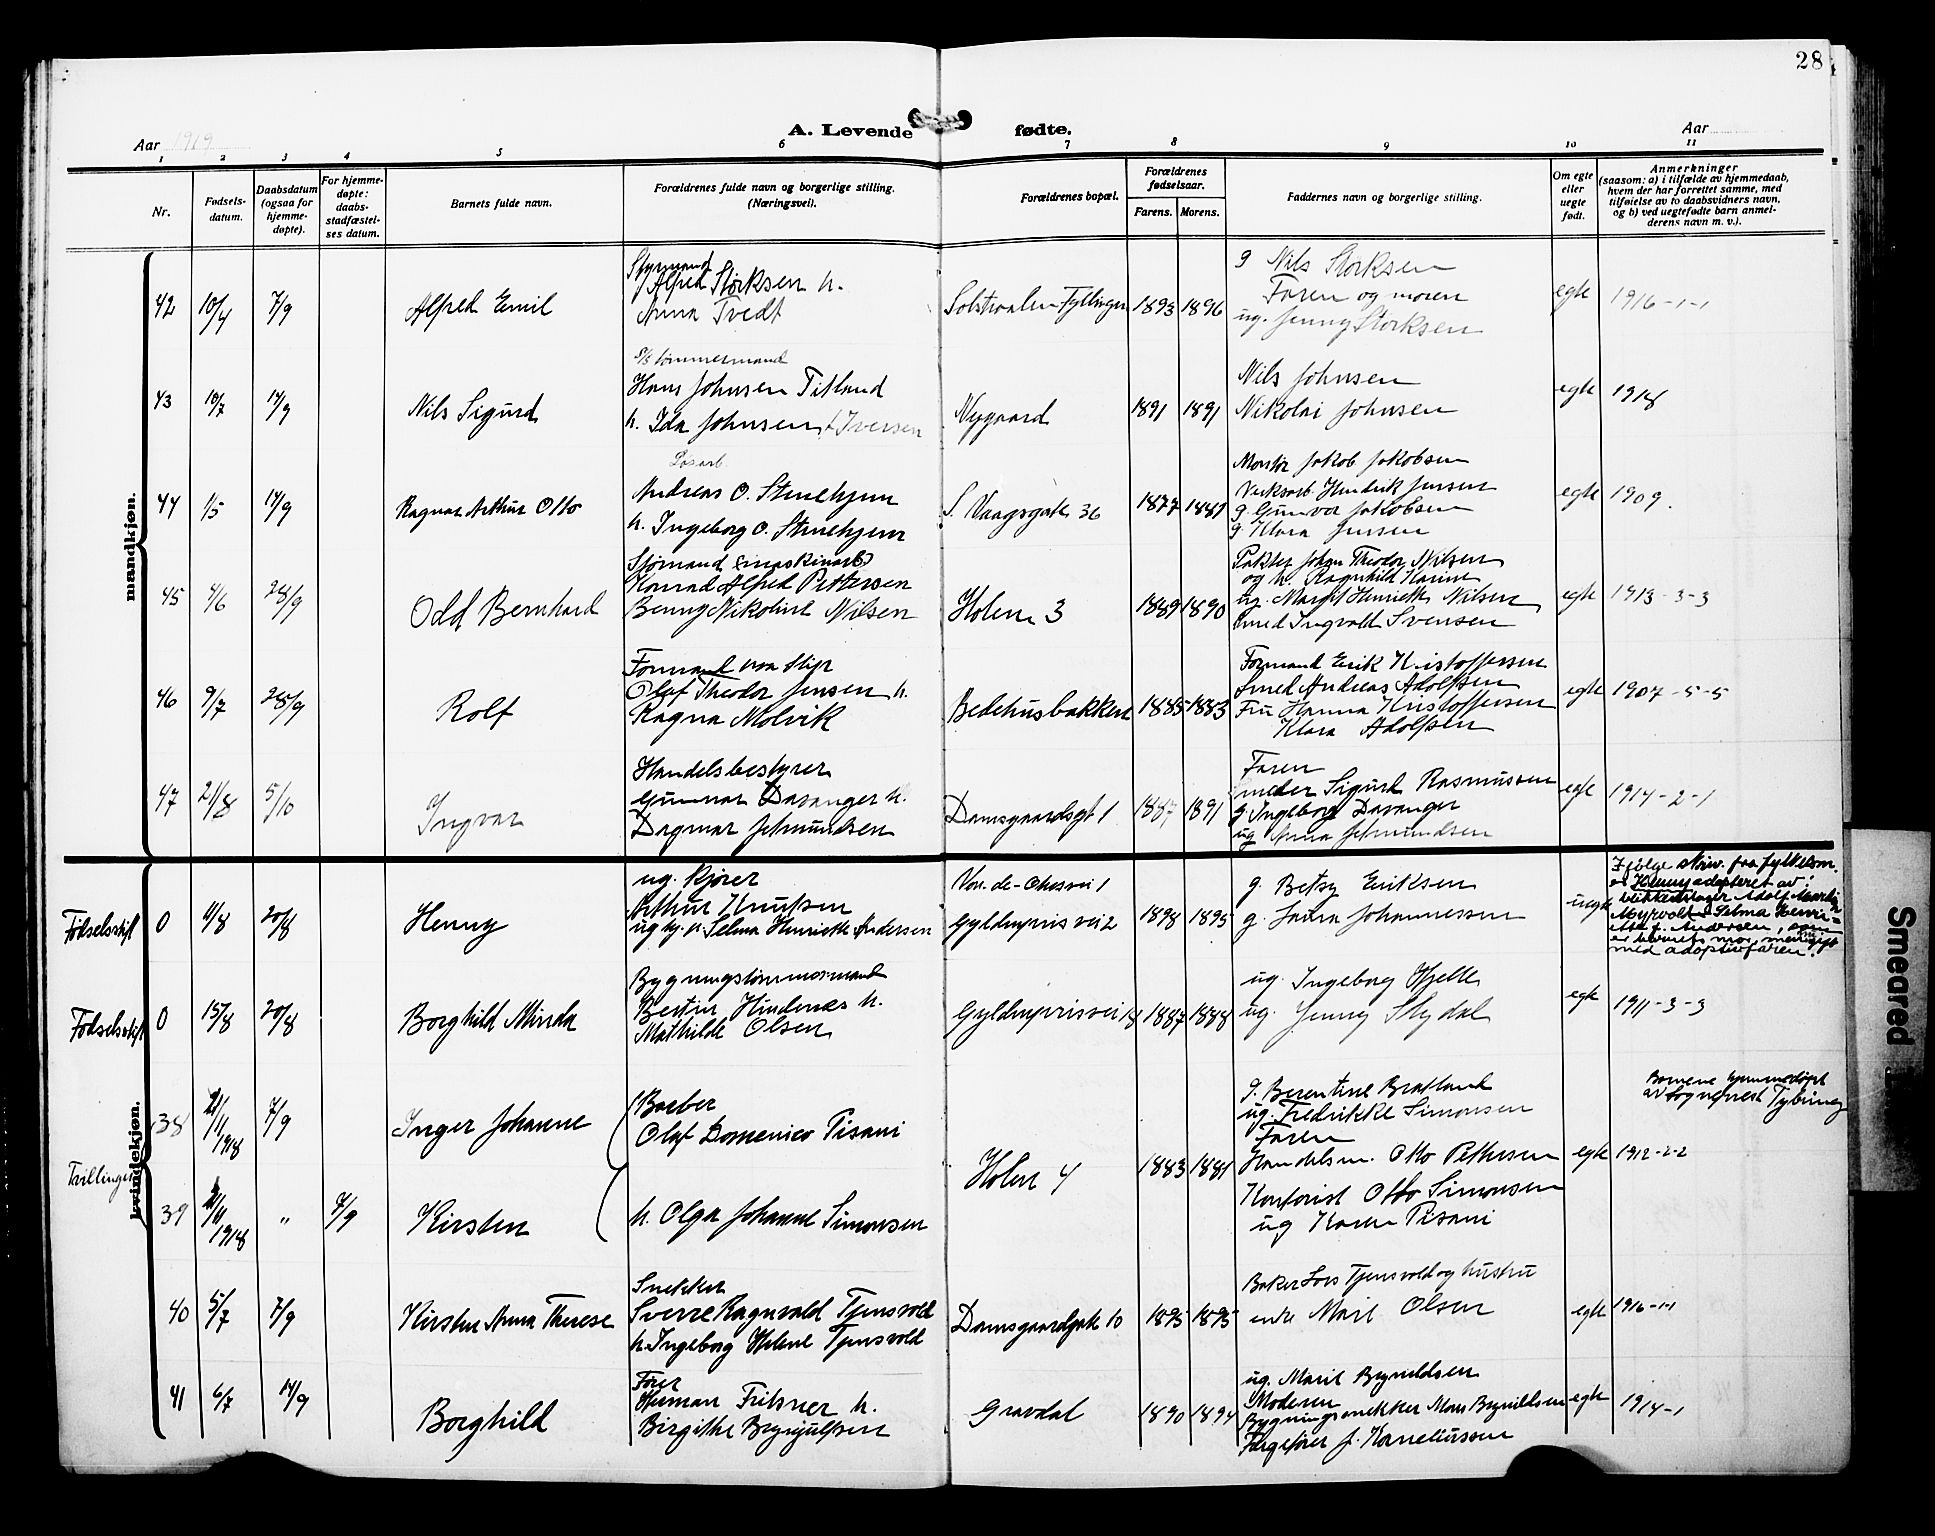 28
Aar 1919
A. Levende fødte.
Aar
1 2 3 4 5 6 7 8 9 10 11
Nr.
Fødsels-
datum.
Daabsdatum
(ogsaa for
hjemme-
døpte).
For hjemme-
døpte:
daabs-
stadfæstel-
ses datum.
Barnets fulde navn.
Forældrenes fulde navn og borgerlige stilling.
(Næringsvei).
Forældrenes bopæl.
Forældrenes
fødselsaar.
Farens. Morens.
Faddernes navn og borgerlige stilling.
Om egte
eller
uegte
født.
Anmerkninger
(saasom: a) i tilfælde av hjemmedaab,
hvem der har forrettet samme, med
tilføielse av to daabsvidners navn,
og b) ved uegtefødte barn anmel-
derens navn m. v.).
mandkjøn.
42 10/4 7/9 Alfred Emil
Styrmand
Alfred Störksen h.
Anna Tvedt
Solstraalen Fyllingen 1893 1896
g Nils Störksen
Faren og moren
ug. Jenny Störksen
egte 1916-1-1
43 10/7 14/9 Nils Sigurd
S/s tömmermand
Hans Johnsen Titland
h. Ida Johnsen f Iversen
Nygaard 1891 1891
Nils Johnsen
Nikolai Johnsen
egte 1918
44 1/5 14/9 Ragnar Arthur Otto
Løsarb.
Andreas O. Stenehjem
h. Ingeborg O. Stenehjem
S. Vaagsgate 36 1877 1881
Montör Jakob Jakobsen
Verksarb. Hendrik Jensen
g. Gunvor Jakobsen
g. Klara Jensen
egte 1909.
45 4/6 28/9 Odd Bernhard
Sjömand (maskinarb)
Konrad Alfred Pettersen
Benny Nikoline Nilsen
Holen 3 1889 1890
Johan Theodor Nilsen
og h. Ragnhild Karine
ug. Margit Henriette Nilsen
Smed Ingvald Svensen
egte 1913-3-3
46 9/7 28/9 Rolf
Formand paa slip
Olaf Theodor Jensen h.
Ragna Molvik
Bedehusbakken 1885 1883
Formand Erik Kristoffersen
Smed Andreas Adolfsen
Fru Hanna Kristoffersen
Klara Adolfsen
egte 1907-5-5
47 21/8 5/10 Ingvar
Handelsbestyrer
Gunnar Davanger h.
Dagmar Amundsen
Damsgaardsgt 1 1887 1891
Faren
Sigurd Rasmussen
g Ingeborg Davanger
ug Anna Amundsen
egte 1914-2-1
kvindekjøn.
Födselsstift 0 11/8 20/8 Henny
ug. kjörer
Arthur Knutsen
ug Selma Henriette Andersen
Von.de-Ohosvei 1
Gyldenpris vei 2 1898 1895
g. Betsy Eriksen
g. Laura Johannessen
uegte
Ifölge skriv. fra fylkesm.
er Henny adopteret av
blikkenslager Adolf Martin
Myrvold & Selma Henri-
ette f. Andersen, som
er barnets mor, men nu gift
med adoptivfaren!
Födselsstift 0 15/8 20/8 Borghild Minda
Bygningstömmermand
Bertin Hindenes h.
Mathilde Olsen
Gyldenprisvei 18 1887 1888
ug. Ingeborg Hjelle
ug. Jenny Skydal
egte 1911-3-3
Tvillinger
38 21/11 1918 7/9 Inger Johanne
Barber
Olaf Domenico Pisani
39 21/11 1918 " 7/9 Kirsten
h. Olga Johanne Simonsen
Holen 4 1883 1881
g. Berentine Bratland
ug. Fredrikke Simonsen
Faren
Handelsm. Otto Pettersen
Kontorist Otto Simonsen
ug Karen Pisani
egte 1912-2-2
Barnene hjemmedöpt
av Sogneprest Tybring
40 5/7 7/9 Kirsten Anna Therese
Snekker
Sverre Ragnvald Tjensvold
h. Ingeborg Helene Tjensvold
Damsgaardgate 10 1895 1895
Baker Lars Tjensvold og hustru
enke Marit Olsen
egte 1916-1-1
41 6/7 14/9 Borghild
Herman Fritsner h.
Birgithe Brynjulfsen
Gravdal 1890 1894
ug. Marie Brynildsen
Moderen
Bygningssnekker Mons Brynildsen
J. Korneliussen
egte 1914-1
Smeared